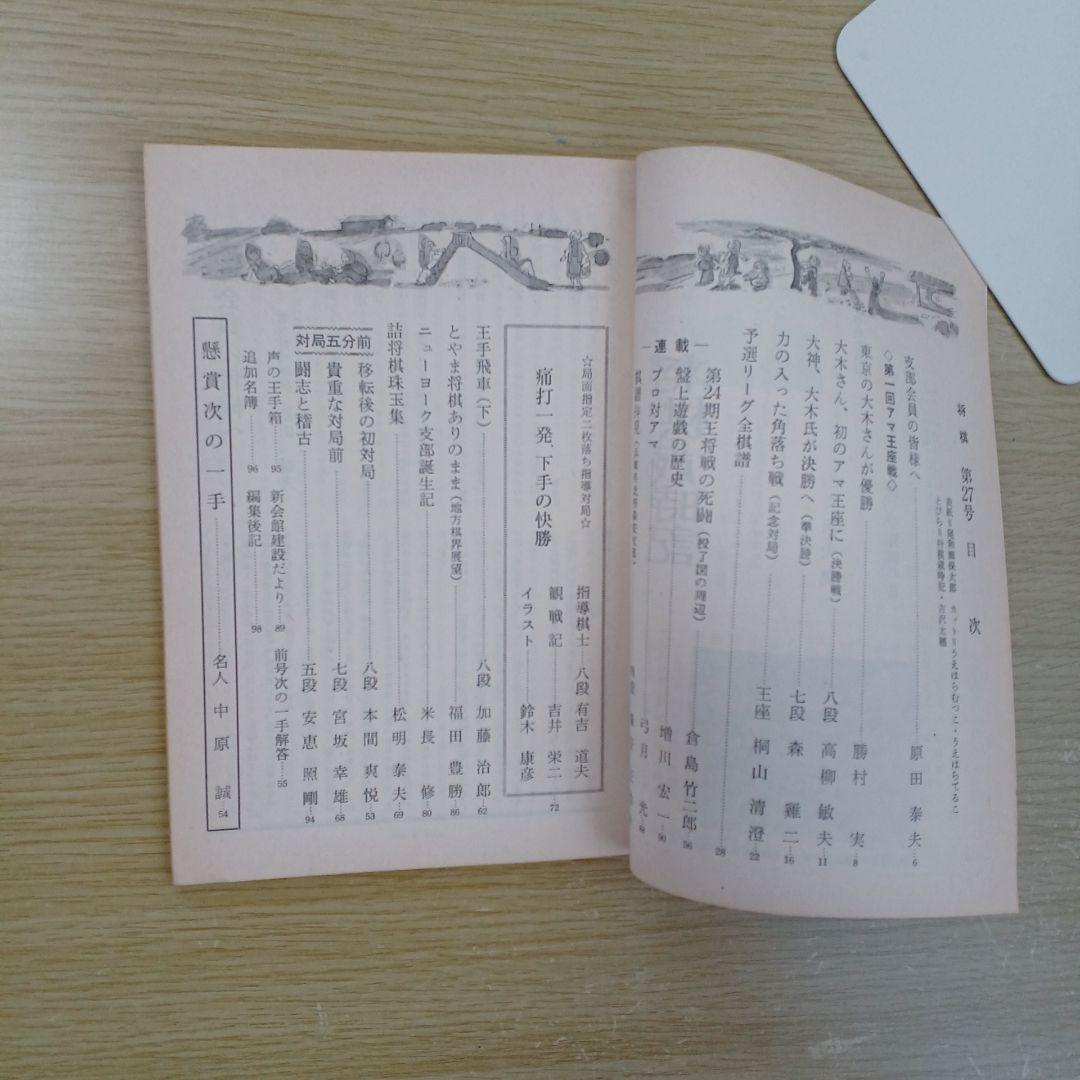 将棋 第27号 目次
支部会員の皆様へ 原田泰夫…6
◇第一回アマ王座戦◇
東京の大木さんが優勝 勝村実…8
大木さん、初のアマ王座に(決勝戦) 八段 高柳敏夫…11
大神、大木氏が決勝へ(準決勝) 七段 森雞二…16
力の入った角落ち戦(記念対局) 王座 桐山清澄…22
予選リーグ全棋譜 …28
第24期王将戦の死闘(投了図の周辺) 倉島竹二郎…56
―連載―
盤上遊戯の歴史 増川宏一…90
プロ対アマ 弓月光
☆局面指定二枚落ち指導対局☆
痛打一発、下手の快勝
指導棋士 八段 有吉道夫
観戦記 吉井栄二
イラスト 鈴木康彦
…72
王手飛車(下) 八段 加藤治郎…62
とやま将棋ありのまま(地方棋界展望) 福田豊勝…86
ニューヨーク支部誕生記 米長修…80
詰将棋珠玉集 松明泰夫…69
対局五分前
移転後の初対局 八段 本間爽悦…53
貴重な対局前 七段 宮坂幸雄…68
闘志と稽古 五段 安恵照剛…94
声の王手箱…95 新会館建設だより…89 前号次の一手解答…55
追加名簿…96 編集後記…98
懸賞次の一手 名人 中原誠 54